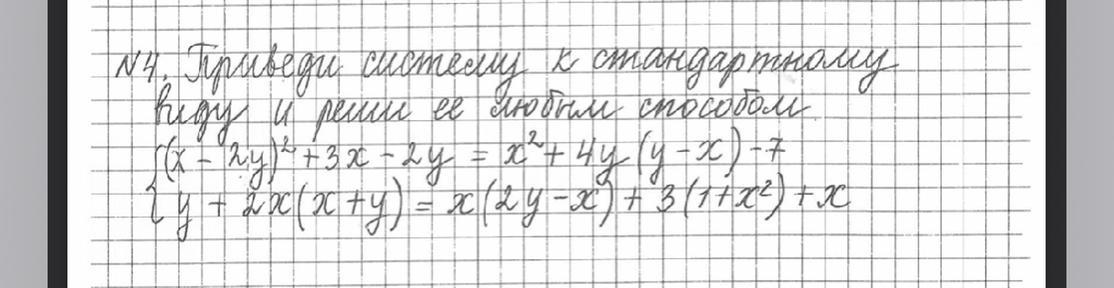 N4. Приведи систему к стандартному
виду и реши ее любым способом
(x - 2y)² + 3x - 2y = x² + 4y(y - x) - 7
y + 2x(x + y) = x(2y - x) + 3(1 + x²) + x